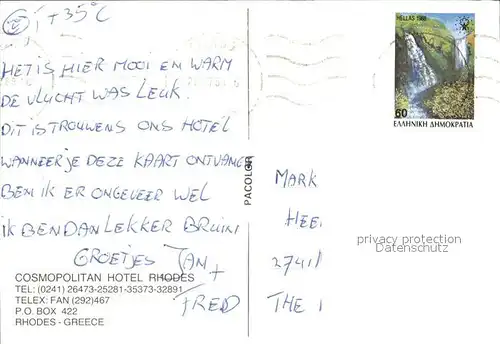 + 35°C
HET IS HIER MOOI EN WARM
DE VLUCHT WAS LEUK.
DIT IS TROUWENS ONS HOTEL
WANNEER JE DEZE KAART ONTVANGT
BEN IK ER ONGEVEER WEL
IK BEN DAN LEKKER BRUIN
GROETJES JAN +
FRED
COSMOPOLITAN HOTEL RHODES
TEL: (0241) 26473-25281-35373-32891
TELEX: FAN (292)467
P.O. BOX 422
RHODES - GREECE
PACOLOR
HELLAS 1988
60
ΕΛΛΗΝΙΚΗ ΔΗΜΟΚΡΑΤΙΑ
MARK
HEE
2741
THE
privacy protection
Datenschutz